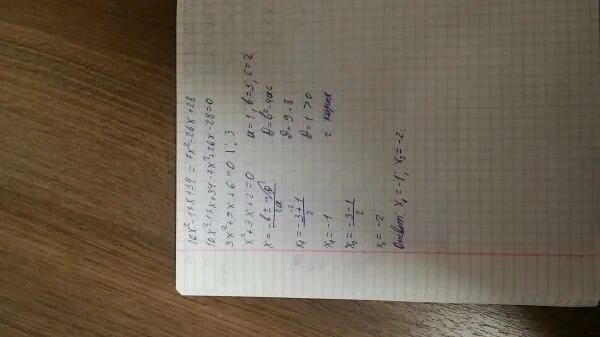 10x²-17x+34 = 7x²-26x+28
10x²-17x+34-7x²+26x-28=0
3x²+9x+6=0 |:3
x²+3x+2=0 a=1; b=3; c=2
x = (-b±√D)/2a D=b²-4ac
D=9-8
x₁ = (-3+1)/2 D=1>0
x₁=-1 2 корня
x₂ = (-3-1)/2
x₂=-2
Ответ: x₁=-1; x₂=-2